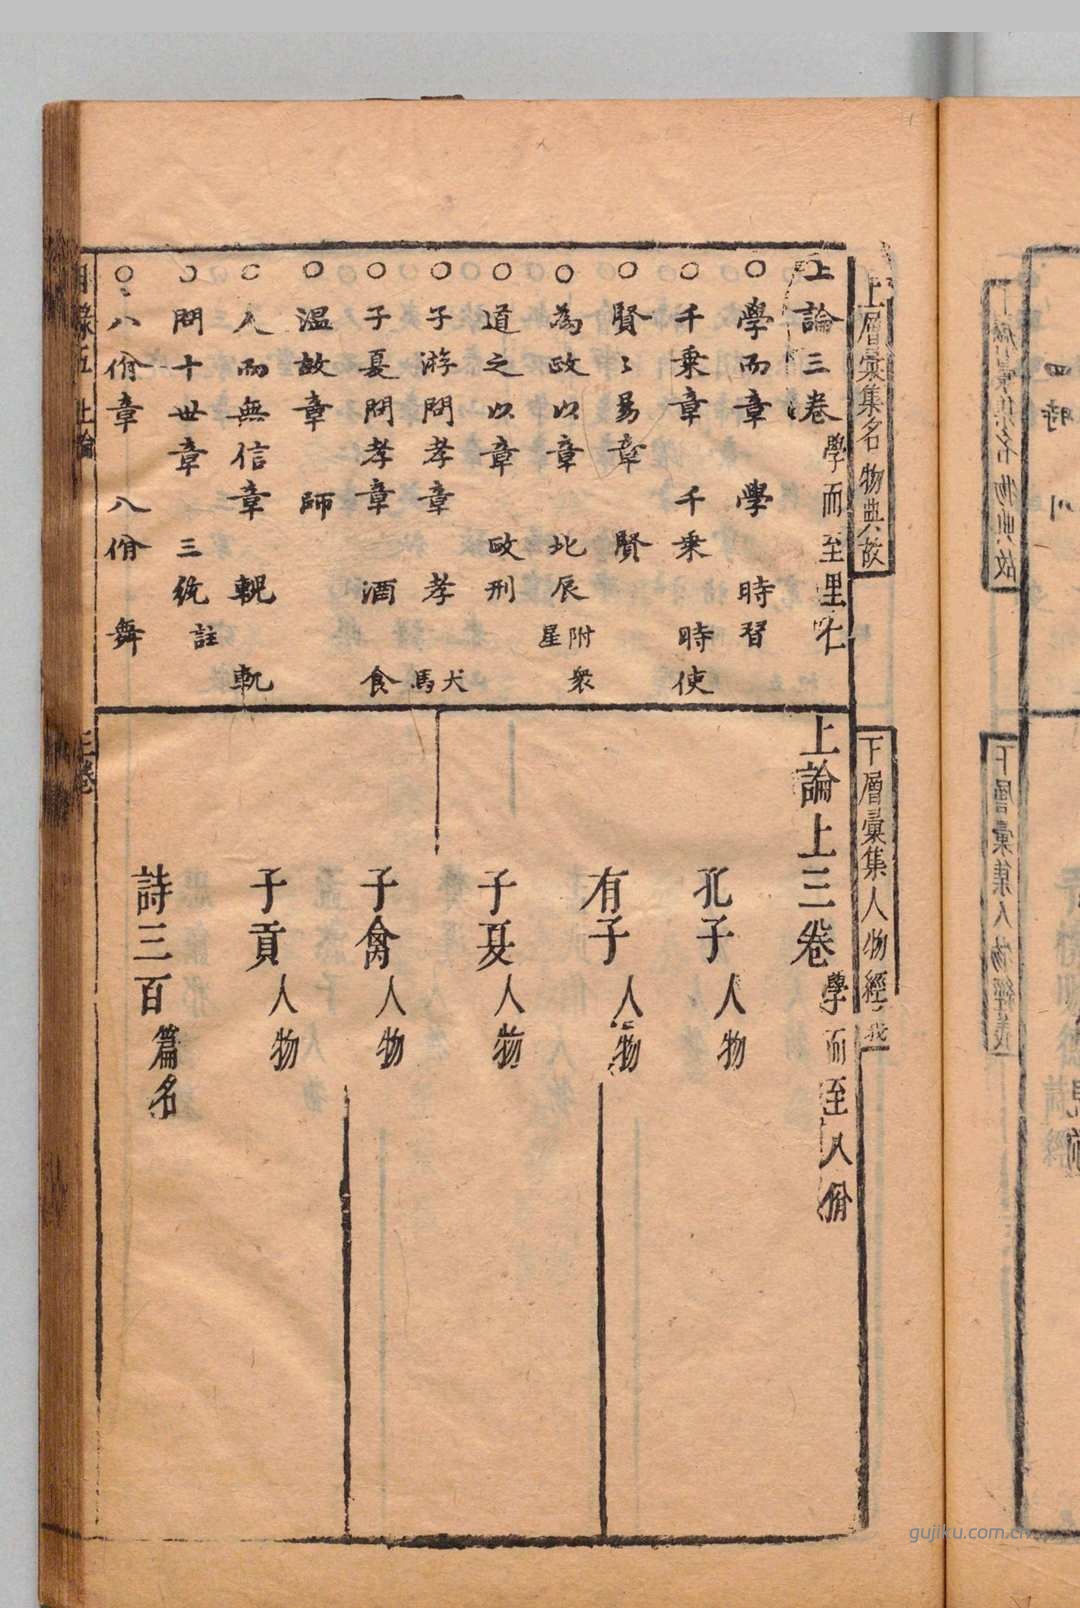 上層彙集名物典故
上論三卷 學而至里仁
○學而章 學 時習
○千乘章 千乘 時使
○賢〻易章 賢
○為政以章 北辰 附衆星
○道之以章 政刑
○子游問孝章 孝 犬馬
○子夏問孝章 酒食
○溫故章 師
○人而無信章 輗 軏
○問十世章 三統 註
○八佾章 八佾 舞
下層彙集人物經
上論上三卷 學而至八佾
孔子 人物
有子 人物
子夏 人物
子禽 人物
子貢 人物
詩三百 篇名
目錄五 上論 三卷
四時 川
gujiku.com.cn